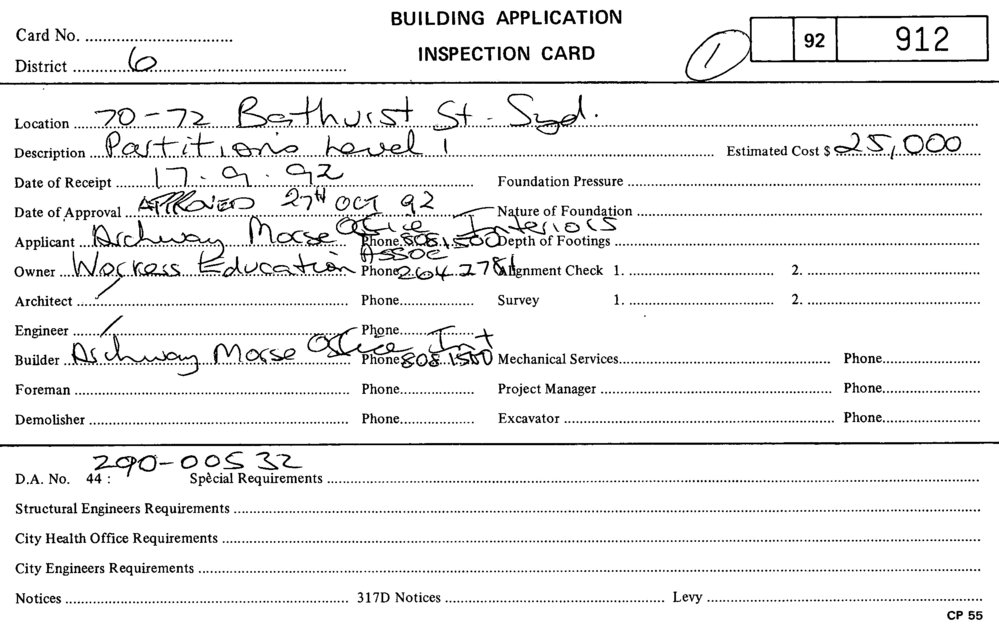 BUILDING APPLICATION
INSPECTION CARD
Card No. ....................................
District ....6....
1 92 912
Location 70-72 Bathurst St. Syd.
Description Partitions Level 1 Estimated Cost $ 25,000
Date of Receipt 17.9.92 Foundation Pressure
Date of Approval APPROVED 27TH OCT 92 Nature of Foundation
Applicant Archway Morse Office Interiors Phone 808.1550 Depth of Footings
Owner Workers Education Assoc Phone 264.2781 Alignment Check 1. 2.
Architect / Phone Survey 1. 2.
Engineer / Phone
Builder Archway Morse Office Int Phone 808.1550 Mechanical Services Phone
Foreman Phone Project Manager Phone
Demolisher Phone Excavator Phone
D.A. No. 44 : 290-00532 Special Requirements
Structural Engineers Requirements
City Health Office Requirements
City Engineers Requirements
Notices 317D Notices Levy
CP 55